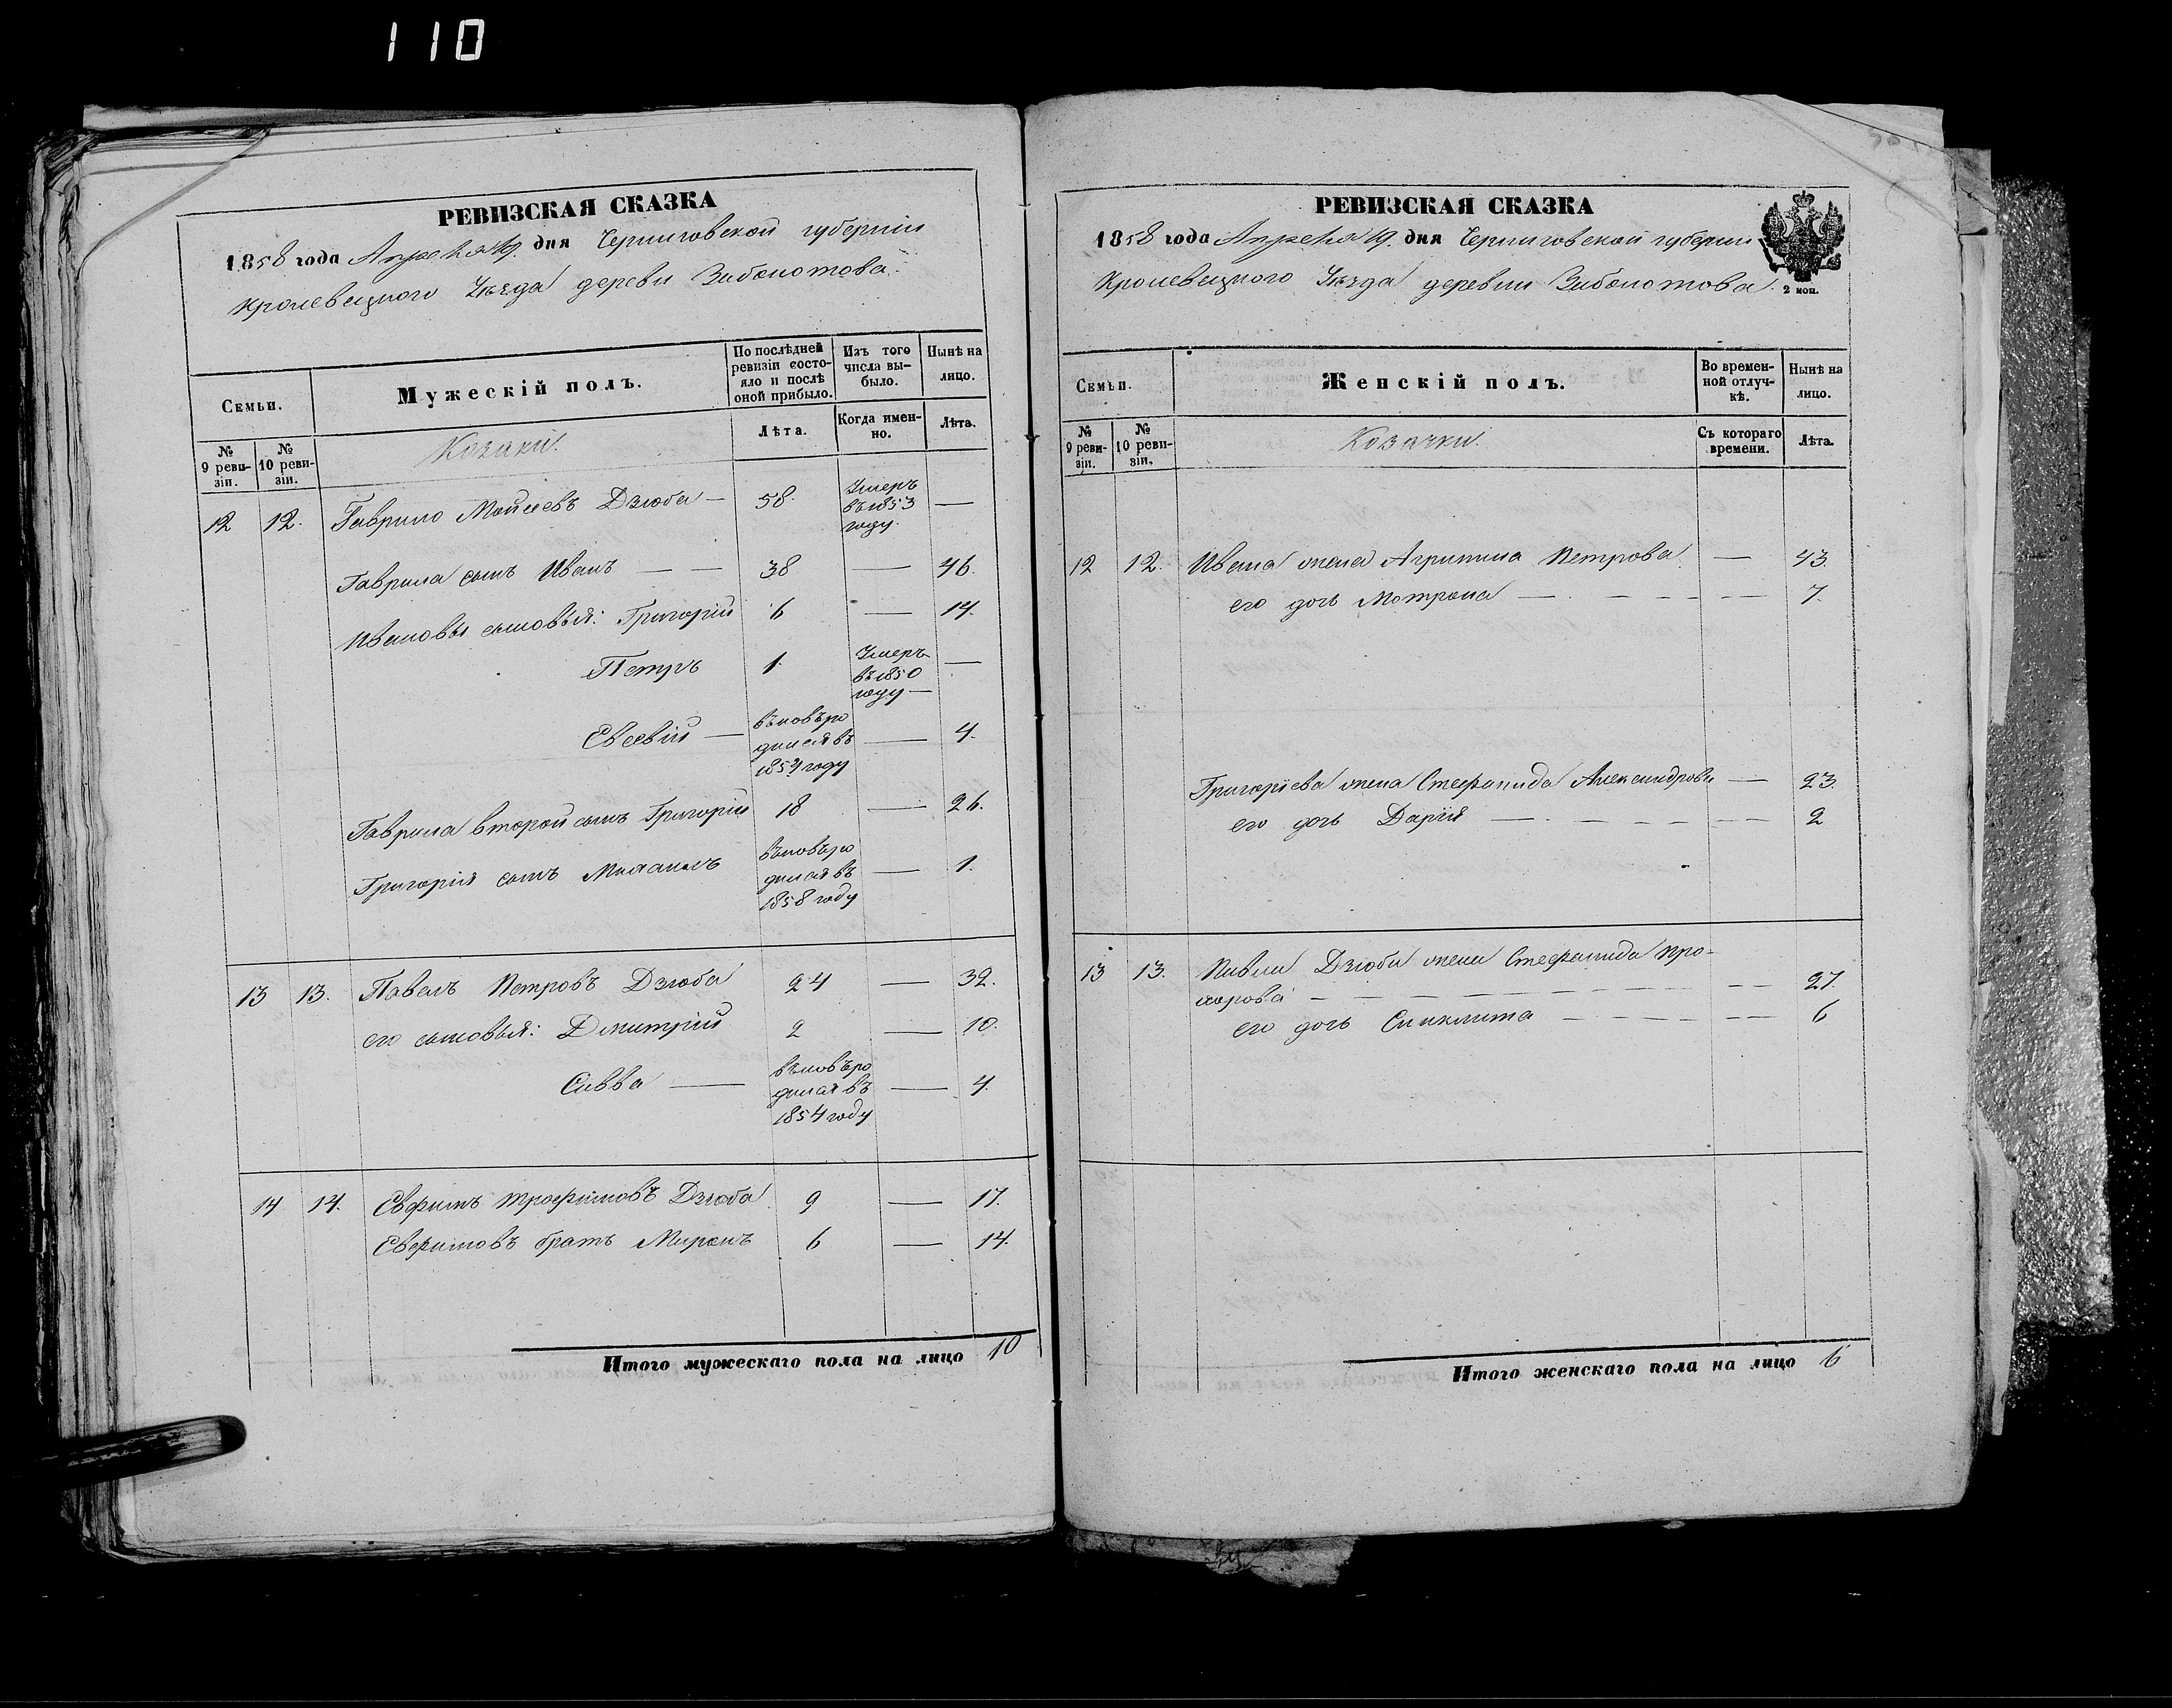 110
РЕВИЗСКАЯ СКАЗКА
1858 года Апреля 19. дня Черниговской губерніи
Кролевецкого Уѣзда деревни Заболотова.
Семьи.
Мужескій полъ.
По послѣдней ревизіи состояло и послѣ оной прибыло.
Изъ того числа выбыло.
Нынѣ на лицо.
№ 9 ревизіи.
№ 10 ревизіи.
Козаки.
Лѣта.
Когда именно.
Лѣта.
12 12. Гаврило Мойсеевъ Дзюба — 58. Умеръ въ 1853 году. —
Гаврила сынъ Иванъ — — 38 — 46.
Ивановы сыновья: Григорій 6 — 14.
Петръ 1. Умеръ въ 1850 году —
Евсевій — вновь родился въ 1854 году — 4.
Гаврила второй сынъ Григорій 18 — 26.
Григорія сынъ Михаилъ вновь родился въ 1858 году — 1.
13 13. Павелъ Петровъ Дзюба 24 — 32.
его сыновья: Дмитрій 2 — 10.
Савва — вновь родился въ 1854 году — 4.
14 14. Евфимъ Трофимовъ Дзюба 9 — 17.
Евфимовъ братъ Миронъ 6 — 14.
Итого мужескаго пола на лицо 10
РЕВИЗСКАЯ СКАЗКА
1858 года Апреля 19. дня Черниговской губерніи
Кролевецкого Уѣзда деревни Заболотова.
2 коп.
Семьи.
Женскій полъ.
Во временной отлучкѣ.
Нынѣ на лицо.
№ 9 ревизіи.
№ 10 ревизіи.
Козачки.
Съ котораго времени.
Лѣта.
12 12. Ивана жена Агрипина Петрова — 43.
его дочь Мотрона — 7.
Григоріева жена Стефанида Александрова — 23.
его дочь Дарія — 2
13 13. Павла Дзюби жена Стефанида Про-
хорова — 27.
его дочь Синклита — 6
Итого женскаго пола на лицо 6